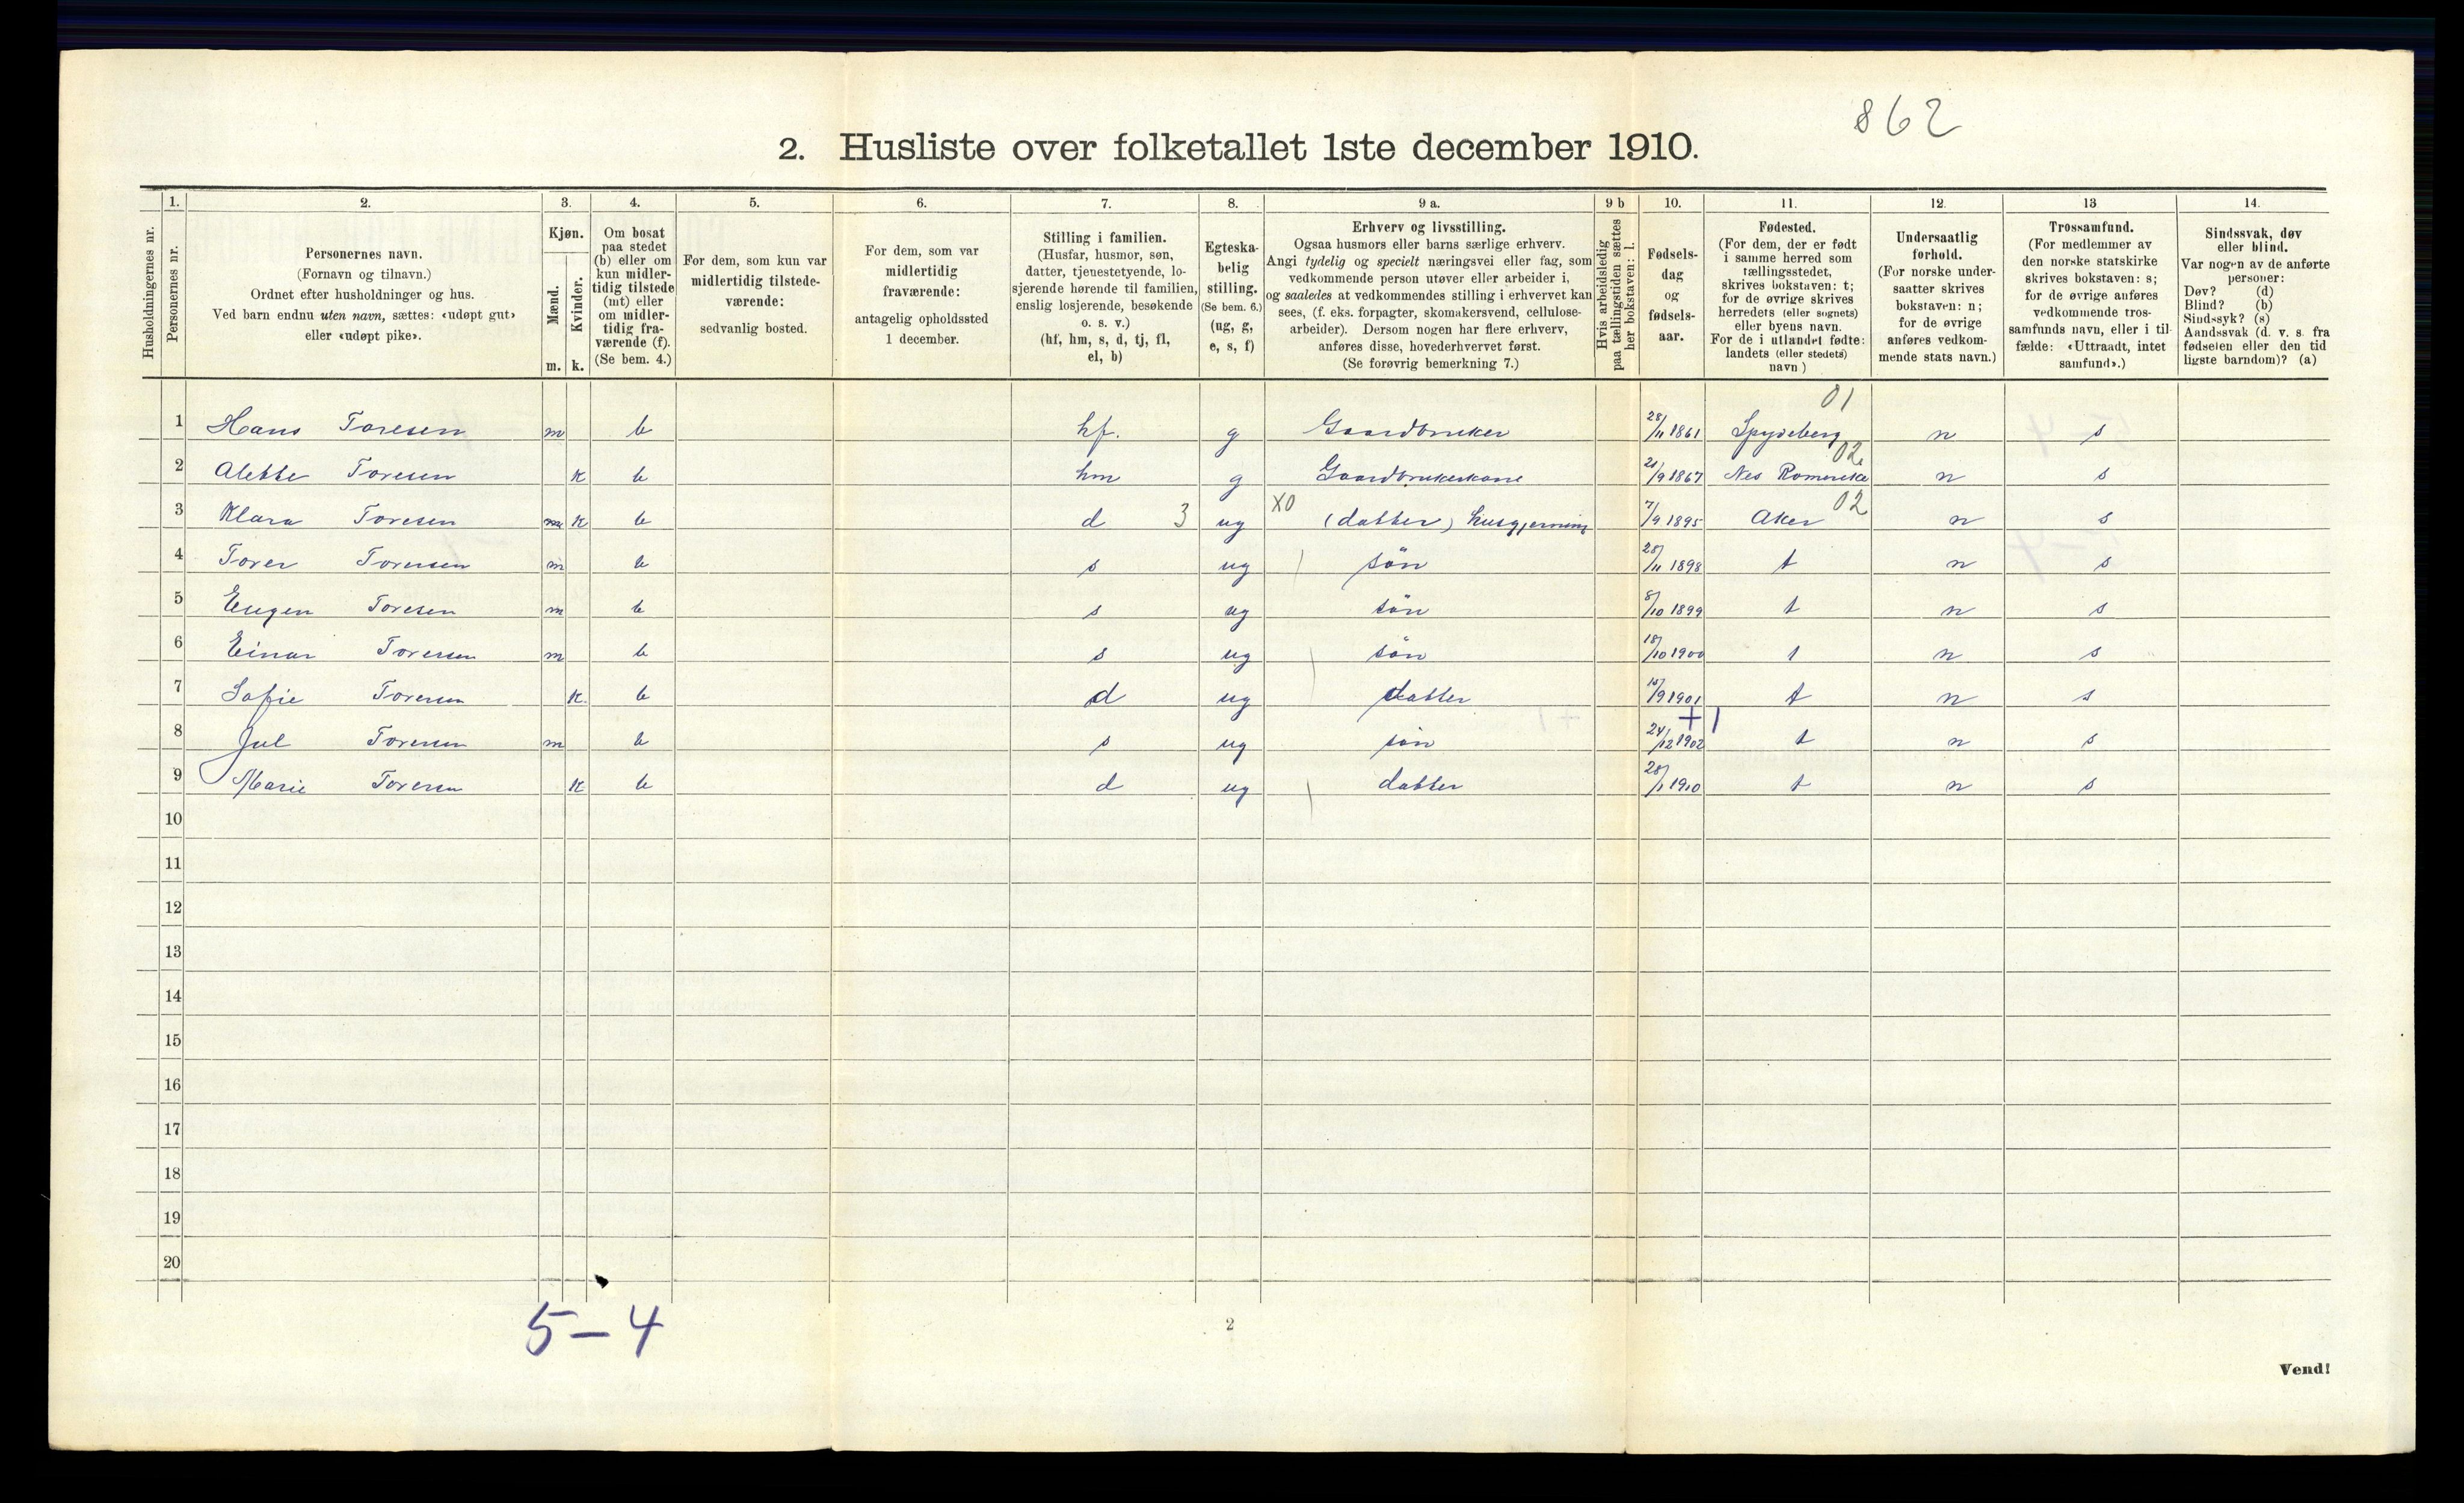 862
2. Husliste over folketallet 1ste december 1910.
1. 2. 3. 4. 5. 6. 7. 8. 9 a. 9 b 10. 11. 12. 13 14.
Husholdningernes nr.
Personernes nr.
Personernes navn.
(Fornavn og tilnavn.)
Ordnet efter husholdninger og hus.
Ved barn endnu uten navn, sættes: «udøpt gut»
eller «udøpt pike».
Kjøn.
Mænd.
Kvinder.
m. k.
Om bosat
paa stedet
(b) eller om
kun midler-
tidig tilstede
(mt) eller
om midler-
tidig fra-
værende (f).
(Se bem. 4.)
For dem, som kun var
midlertidig tilstede-
værende:
sedvanlig bosted.
For dem, som var
midlertidig
fraværende:
antagelig opholdssted
1 december.
Stilling i familien.
(Husfar, husmor, søn,
datter, tjenestetyende, lo-
sjerende hørende til familien,
enslig losjerende, besøkende
o. s. v.)
(hf, hm, s, d, tj, fl,
el, b)
Egteska-
belig
stilling.
(Se bem. 6.)
(ug, g,
e, s, f)
Erhverv og livsstilling.
Ogsaa husmors eller barns særlige erhverv.
Angi tydelig og specielt næringsvei eller fag, som
vedkommende person utøver eller arbeider i,
og saaledes at vedkommendes stilling i erhvervet kan
sees, (f. eks. forpagter, skomakersvend, cellulose-
arbeider). Dersom nogen har flere erhverv,
anføres disse, hovederhvervet først.
(Se forøvrig bemerkning 7.)
Hvis arbeidsledig
paa tællingstiden sættes
her bokstaven: l.
Fødsels-
dag
og
fødsels-
aar.
Fødested.
(For dem, der er født
i samme herred som
tællingsstedet,
skrives bokstaven: t;
for de øvrige skrives
herredets (eller sognets)
eller byens navn.
For de i utlandet fødte:
landets (eller stedets)
navn )
Undersaatlig
forhold.
(For norske under-
saatter skrives
bokstaven: n;
for de øvrige
anføres vedkom-
mende stats navn.)
Trossamfund.
(For medlemmer av
den norske statskirke
skrives bokstaven: s;
for de øvrige anføres
vedkommende tros-
samfunds navn, eller i til-
fælde: «Uttraadt, intet
samfund».)
Sindssvak, døv
eller blind.
Var nogen av de anførte
personer:
Døv? (d)
Blind? (b)
Sindssyk? (s)
Aandssvak (d. v. s. fra
fødselen eller den tid
ligste barndom)? (a)
01
1 Hans Toresen m b hf. g Gaardbruker 28/11 1861 Spydeberg n s
02
2 Alette Toresen k b hm g Gaardbrukerkone 21/9 1867 Nes Romerike n s
3 X0 02
3 Klara Toresen m k b d ug (datter) husgjerning 7/9 1895 Aker n s
4 Torer Toresen m b s ug sön 28/11 1898 t n s
5 Eugen Toresen m b s ug sön 8/10 1899 t n s
6 Einar Toresen m b s ug sön 18/10 1900 t n s
7 Sofie Toresen k. b d ug datter 15/9 1901 t n s
+1
8 Jul Toresen m b s ug sön 24/12 1902 t n s
9 Marie Toresen k b d ug datter 28/1 1910 t n s
10
11
12
13
14
15
16
17
18
19
20
5-4
2
Vend!